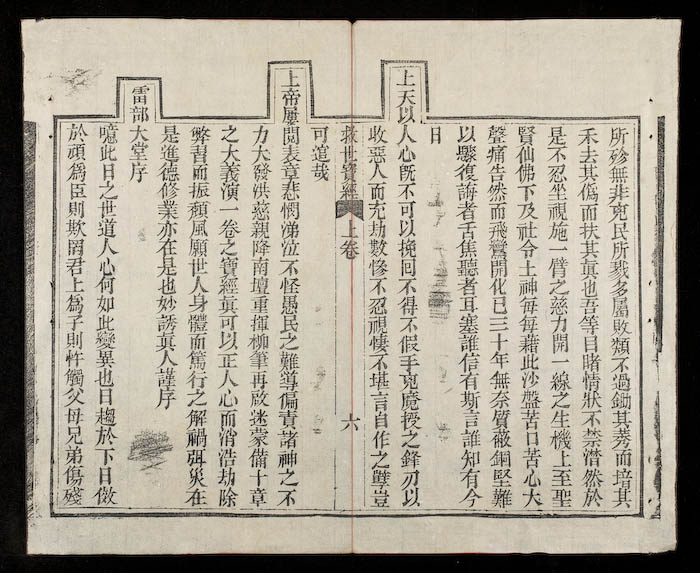 所殄無非兇民所戮多屬敗類不過鋤其莠而培其
禾去其僞而扶其眞也吾等目睹情狀不禁潸然於
是不忍坐視施一臂之慈力開一線之生機上至聖
賢仙佛下及社令土神每每藉此沙盤苦口苦心大
聲痛告然而飛鸞開化已三十年無奈質蔽銅堅難
以驟復誨者舌焦聽者耳塞誰信有斯言誰知有今
日
上天以人心旣不可以挽回不得不假手兇魔授之鋒刃以
收惡人而充劫數慘不忍視悽不堪言自作之孽豈
救世寶經 上卷 六
可逭哉
上帝屢閱表章悲憫涕泣不怪愚民之難導偏責諸神之不
力大發洪慈親降南壇重揮柳筆再啟迷蒙備十章
之大義演一卷之寶經眞可以正人心而消浩劫除
弊習而振頽風願世人身體而篤行之解禍弭災在
是進德修業亦在是也妙誘眞人謹序
雷部大堂序
噫此日之世道人心何如此變異也日趨於下日儆
於頑爲臣則欺罔君上爲子則忤觸父母兄弟傷殘